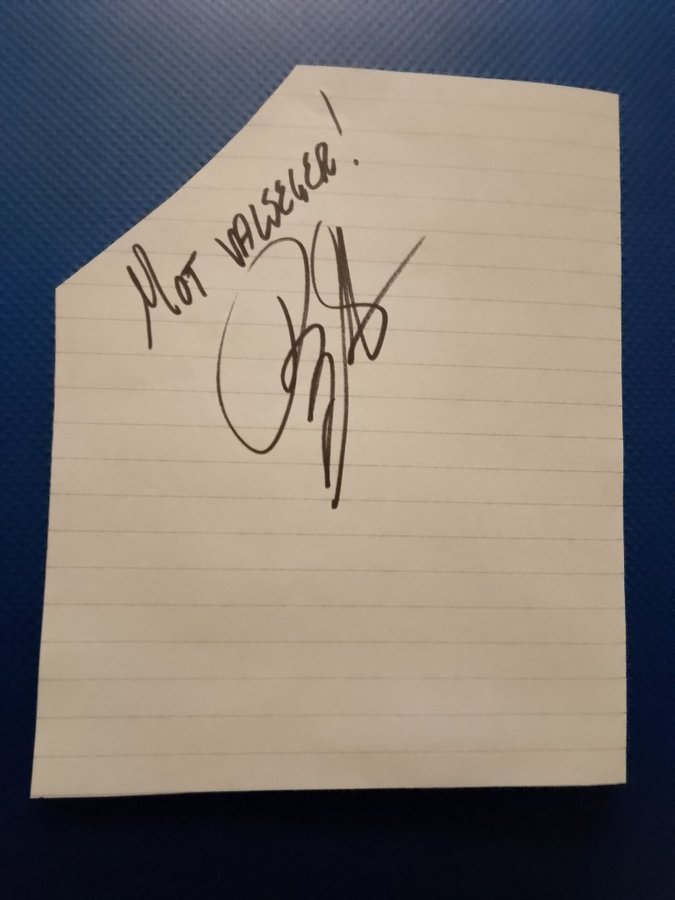 MOT VALSEGER!